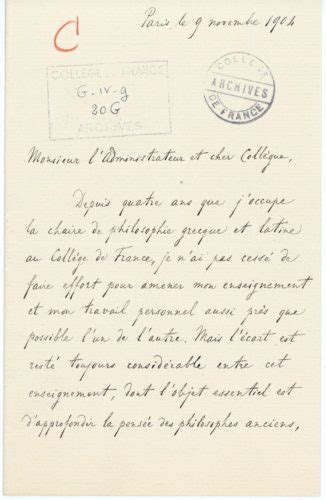 Paris, le 9 novembre 1904
C
COLLÈGE DE FRANCE
G-IV-g
30G
ARCHIVES
COLLÈGE
ARCHIVES
DE FRANCE
Monsieur l'Administrateur et cher Collègue,
Depuis quatre ans que j'occupe
la chaire de philosophie grecque et latine
au Collège de France, je n'ai pas cessé de
faire effort pour amener mon enseignement
et mon travail personnel aussi près que
possible l'un de l'autre. Mais l'écart est
resté toujours considérable entre cet
enseignement, dont l'objet essentiel est
d'approfondir la pensée des philosophes anciens,